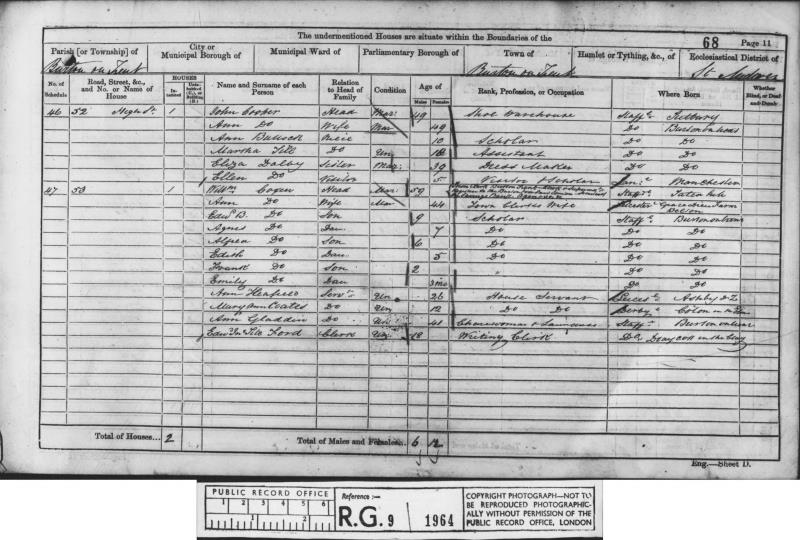 The undermentioned Houses are situate within the Boundaries of the
68 Page 11
Parish [or Township] of
City or Municipal Borough of
Municipal Ward of
Parliamentary Borough of
Town of
Hamlet or Tything, &c., of
Ecclesiastical District of
Burton on Trent
Burton on Trent
No. of Schedule
Road, Street, &c., and No. or Name of House
HOUSES
Inhabited
Uninhabited (U.), or Building (B.)
Name and Surname of each Person
Relation to Head of Family
Condition
Age of
Males Females
Rank, Profession, or Occupation
Where Born
Whether Blind, or Deaf-and-Dumb
46 52 High St 1 John Cooper Head Mar 49 Shoe Warehouse Staffs
Ann Do Wife Mar 49 Do
Ann Niece 10 Scholar Do Do
Martha Do Un 18 Assistant Do Do
Eliza Dalby Sister Mar 39 Maker Do Do
Ellen Do Visitor 5 Visitor Scholar Manchester
47 53 1 Willm Head Mar 59 Staffs
Ann Do Wife Mar 44 Town Clerks Wife
Edwd B. Do Son 9 Scholar Staffs
Agnes Do Dau 7 Do Do Do
Do Son 6 Do Do Do
Edith Do Dau 5 Do Do Do
Frank Do Son 2 " Do Do
Emily Do Dau 3mo Do Do
Ann Servt Un 26 House Servant Leics Ashby d Z
Mary Ann Do Un 12 Do Do Derby
Ann Gladdin Do Un 41 Charwoman & Staffs
Ford Clerk Un 18 Writing Clerk Do
Total of Houses... 2
Total of Males and Females... 6 12
Eng.—Sheet D.
PUBLIC RECORD OFFICE
1 2 3 4 5 6
1 2
Reference :—
R.G. 9 1964
COPYRIGHT PHOTOGRAPH—NOT TO
BE REPRODUCED PHOTOGRAPHIC-
ALLY WITHOUT PERMISSION OF THE
PUBLIC RECORD OFFICE, LONDON